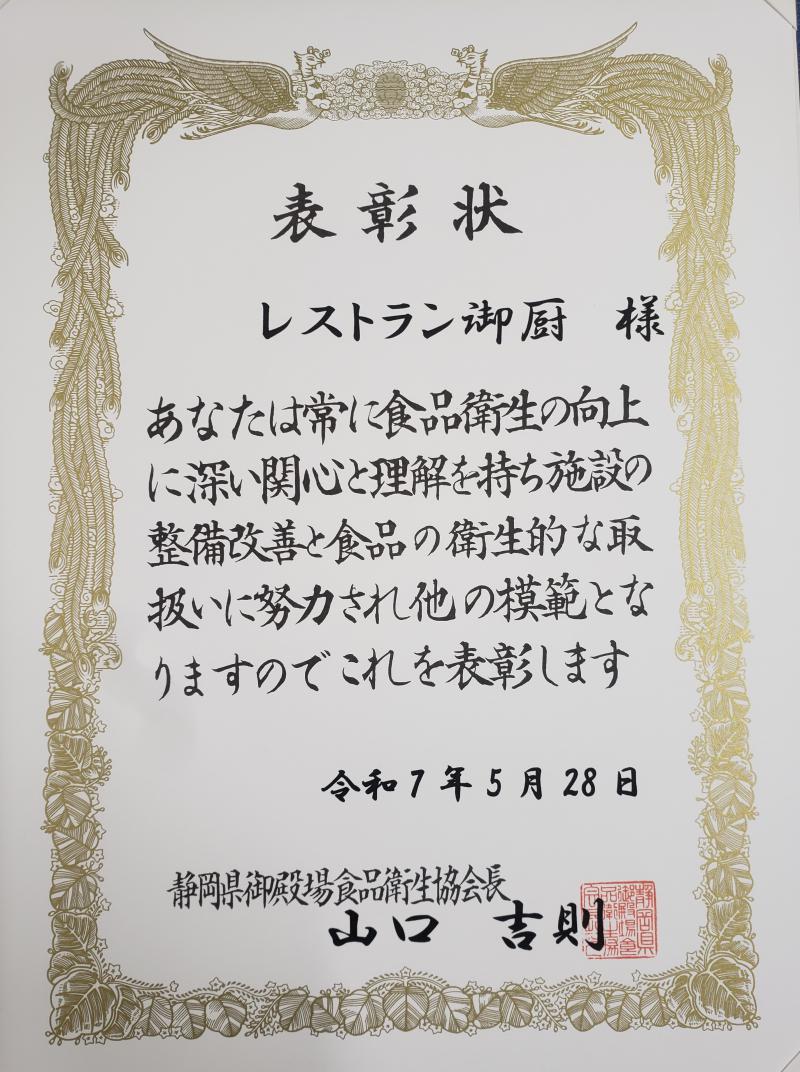 表彰状
レストラン御厨 様
あなたは常に食品衛生の向上
に深い関心と理解を持ち施設の
整備改善と食品の衛生的な取
扱いに努力され他の模範とな
りますのでこれを表彰します
令和7年5月28日
静岡県御殿場食品衛生協会長
山口 吉則